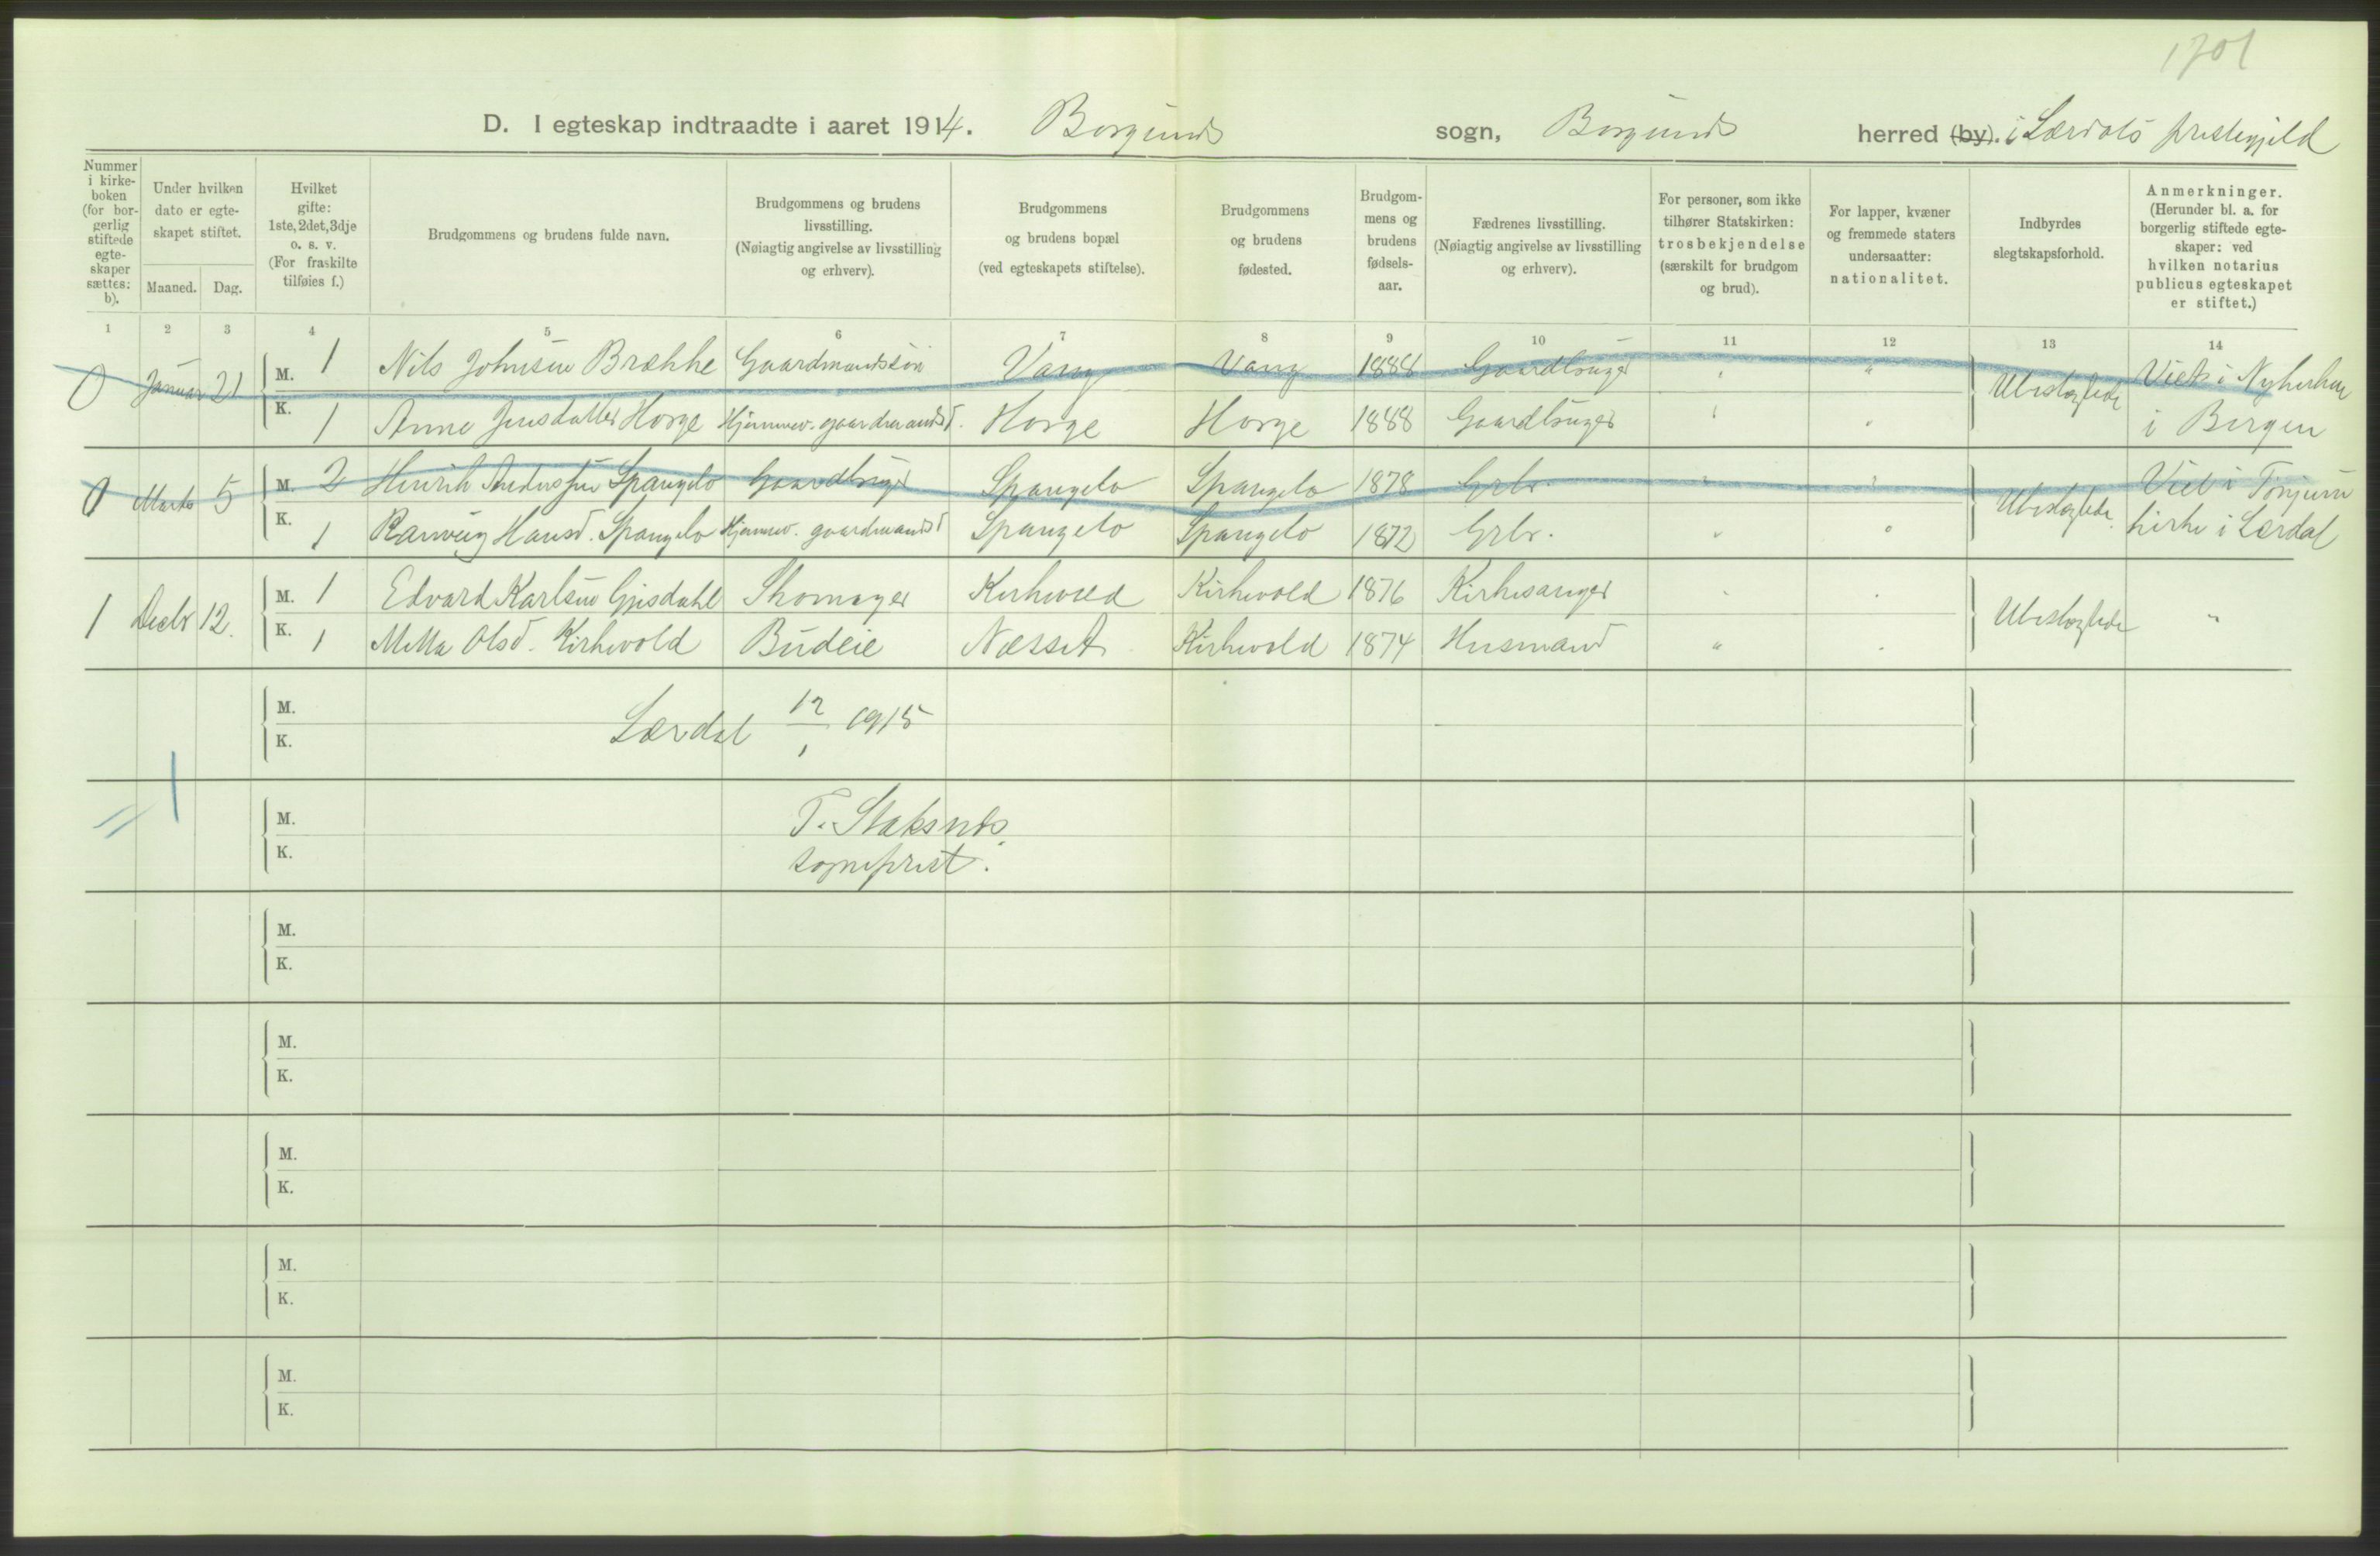 1701
D. I egteskap indtraadte i aaret 1914. Borgunds sogn, Borgunds herred (by). i Lærdals prestegjeld
Nummer i kirkeboken (for borgerlig stiftede egteskaper sættes: b).
Under hvilken dato er egteskapet stiftet.
Maaned. Dag.
Hvilket gifte: 1ste, 2det, 3dje o. s. v. (For fraskilte tilføies f.)
Brudgommens og brudens fulde navn.
Brudgommens og brudens livsstilling. (Nøiagtig angivelse av livsstilling og erhverv).
Brudgommens og brudens bopæl (ved egteskapets stiftelse).
Brudgommens og brudens fødested.
Brudgommens og brudens fødselsaar.
Fædrenes livsstilling. (Nøiagtig angivelse av livsstilling og erhverv).
For personer, som ikke tilhører Statskirken: trosbekjendelse (særskilt for brudgom og brud).
For lapper, kvæner og fremmede staters undersaatter: nationalitet.
Indbyrdes slegtskapsforhold.
Anmerkninger. (Herunder bl. a. for borgerlig stiftede egteskaper: ved hvilken notarius publicus egteskapet er stiftet.)
1 2 3 4 5 6 7 8 9 10 11 12 13 14
0 Januar 21 M. 1 Nils Johnsen Brække Gaardmandssøn Vang Vang 1888 Gaardbruger " " Ubeslægtede Viet i Nykirken
K. 1 Anna Jensdatter Horge Hjemmev. gaardmandsd. Horge Horge 1888 Gaardbruger " " i Bergen
0 Marts 5 M. 2 Henrik Anderssen Spangelo Gaardbruger Spangelo Spangelo 1878 Grbr. " " Ubeslægtede Viet i Tønjum
K. 1 Ranveig Hansd. Spangelo Hjemmev. gaardmandsd Spangelo Spangelo 1872 Grbr. " " kirke i Lærdal
1 Decbr 12. M. 1 Edvard Karlsen Gjesdahl Skomager Kirkevold Kirkevold 1876 Kirkesanger " " Ubeslægtede "
K. 1 Metta Olsd. Kirkevold Budeie Næsset Kirkevold 1874 Husmand " "
M.
K.
Lærdal 12/1 1915
M.
K.
T. Staksnes
sogneprest.
M.
K.
M.
K.
M.
K.
M.
K.
M.
K.